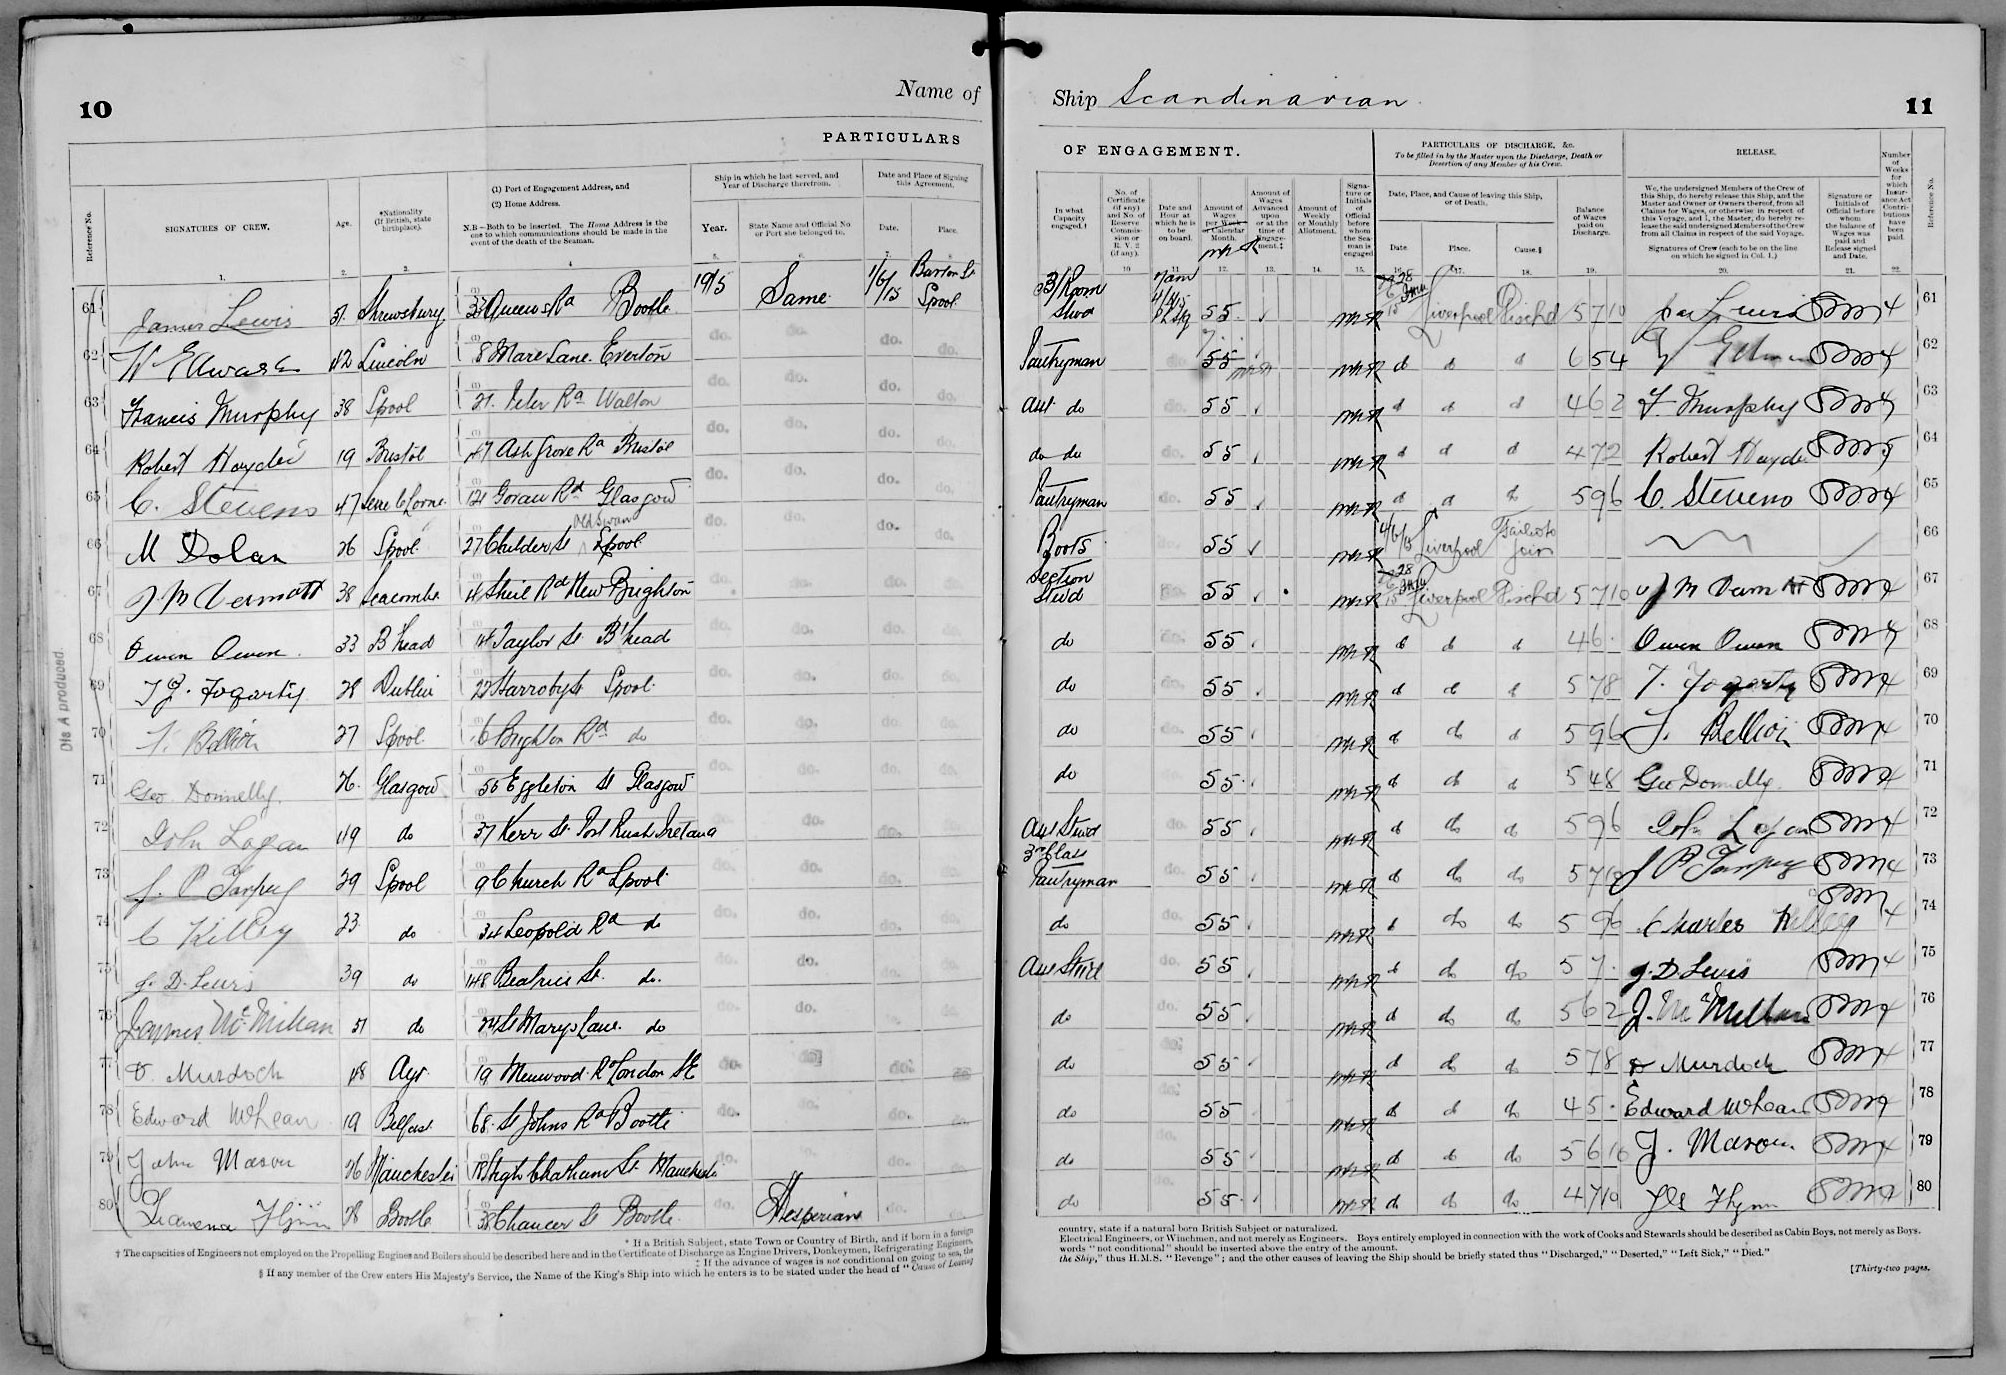 10
Name of
PARTICULARS
Reference No.
SIGNATURES OF CREW.
Age.
*Nationality (If British, state birthplace).
(1) Port of Engagement Address, and
(2) Home Address.
N.B.—Both to be inserted. The Home Address is the one to which communications should be made in the event of the death of the Seaman.
Ship in which he last served, and Year of Discharge therefrom.
Year.
State Name and Official No or Port she belonged to.
Date and Place of Signing this Agreement.
Date.
Place.
1. 2. 3. 4 5. 6. 7. 8
61 James Lewis Shrewsbury 33 Queens Rd Bootle 1915 Same 1/6/15 Burton St Lpool
62 W Edwards 42 Lincoln 8 Mare Lane Everton do. do. do. do.
63 Francis Murphy 38 Lpool 21. Peter Rd Walton do. do. do. do.
64 Robert Hayde 19 Bristol 47 Ash Grove Rd Bristol do. do. do. do.
65 C. Stevens 47 121 Govan Rd Glasgow do. do. do. do.
66 M Dolan 26 Lpool 27 Childer St Old Swan Lpool do. do. do. do.
67 J McDermott 38 Seacombe 14 Sheil Rd New Brighton do. do. do.
68 Owen Owen 33 B'head 14 Taylor St B'head do. do. do. do.
69 T J. Fogarty 28 Dublin 22 Harroby St Lpool do. do. do. do.
70 T. Bellion 27 Lpool 6 Brighton Rd do do. do. do. do.
71 Geo. Donnelly 26 Glasgow 55 Eggleton St Glasgow do. do. do. do.
72 John Logan 49 do 37 Kerr St. Port Rush Ireland do. do. do.
73 J. P Tarpey 29 Lpool 9 Church Rd Lpool do. do. do. do.
74 C Killey 23 do 34 Leopold Rd do do. do. do. do.
75 J. D. Lewis 39 do 148 Beatrice St. do. do. do. do.
76 James McMillan 51 do 24 St Marys Lane. do do. do.
77 D. Murdoch 48 Ayr 19 London SE do. do. do. do.
78 Edward McLean 19 Belfast 68 St Johns Rd Bootle do. do. do. do.
79 John Mason 26 Manchester 18 High Chatham St. Manchester do. do. do.
80 Flynn 28 Bootle 38 Chaucer St Bootle do. Hesperian do. do.
Dis A produced.
* If a British Subject, state Town or Country of Birth, and if born in a foreign
† The capacities of Engineers not employed on the Propelling Engines and Boilers should be described here and in the Certificate of Discharge as Engine Drivers, Donkeymen, Refrigerating Engineers,
‡ If the advance of wages is not conditional on going to sea, the
§ If any member of the Crew enters His Majesty's Service, the Name of the King's Ship into which he enters is to be stated under the head of "Cause of Leaving
Ship Scandinavian
11
OF ENGAGEMENT.
PARTICULARS OF DISCHARGE, &c.
To be filled in by the Master upon the Discharge, Death or Desertion of any Member of his Crew.
RELEASE.
In what Capacity engaged.†
No. of Certificate (if any) and No. of Reserve Commission or R. V. 2 (if any).
Date and Hour at which he is to be on board.
Amount of Wages per Week or Calendar Month.
Amount of Wages Advanced upon or at the time of Engagement.‡
Amount of Weekly or Monthly Allotment.
Signature or Initials of Official before whom the Seaman is engaged
Date, Place, and Cause of leaving this Ship, or of Death.
Date.
Place.
Cause.§
Balance of Wages paid on Discharge.
We, the undersigned Members of the Crew of this Ship, do hereby release this Ship, and the Master and Owner or Owners thereof, from all Claims for Wages, or otherwise in respect of this Voyage, and I, the Master, do hereby release the said undersigned Members of the Crew from all Claims in respect of the said Voyage.
Signatures of Crew (each to be on the line on which he signed in Col. 1.)
Signature or Initials of Official before whom the balance of Wages was paid and Release signed and Date.
Number of Weeks for which Insurance Act Contributions have been paid.
Reference No.
10 11 12. 13. 14. 15. 16. 17. 18. 19. 20. 21. 22.
B/Room Stwd 7am 55 Liverpool Dischd 5 7 10 Jas Lewis 4 61
Pantryman do. 55 do do do 6 5 4 4 62
Asst do do. 55 do do do 4 6 2 F. Murphy 4 63
do do do. 55 do do do 4 7 2 Robert Hayde 5 64
Pantryman do. 55 do do do 5 9 6 C. Stevens 4 65
Boots do. 55 4/6/15 Liverpool Failed to join 66
Section Stwd do. 55 Liverpool Dischd 5 7 10 J McDermott 4 67
do do. 55 do do do 4 6 Owen Owen 4 68
do do. 55 do do do 5 7 8 T. Fogarty 4 69
do do. 55 do do do 5 9 6 T. Bellion 4 70
do do. 55 do do do 5 4 8 Geo Donnelly 4 71
Asst Stwd do. 55 do do do 5 9 6 John Logan 4 72
3rd Class Pantryman do. 55 do do do 5 7 10 J P Tarpey 4 73
do do. 55 do do do 5 9 6 Charles Killey 4 74
Asst Stwd do. 55 do do do 5 7 J. D Lewis 4 75
do do. 55 do do do 5 6 2 J. McMillan 4 76
do do. 55 do do do 5 7 8 D Murdoch 4 77
do do. 55 do do do 4 5 Edward McLean 4 78
do do. 55 do do do 5 6 10 J. Mason 4 79
do do. 55 do do do 4 7 10 Jas Flynn 4 80
country, state if a natural born British Subject or naturalized.
Electrical Engineers, or Winchmen, and not merely as Engineers. Boys entirely employed in connection with the work of Cooks and Stewards should be described as Cabin Boys, not merely as Boys.
words "not conditional" should be inserted above the entry of the amount.
the Ship," thus H.M.S. "Revenge"; and the other causes of leaving the Ship should be briefly stated thus "Discharged," "Deserted," "Left Sick," "Died."
[Thirty-two pages.